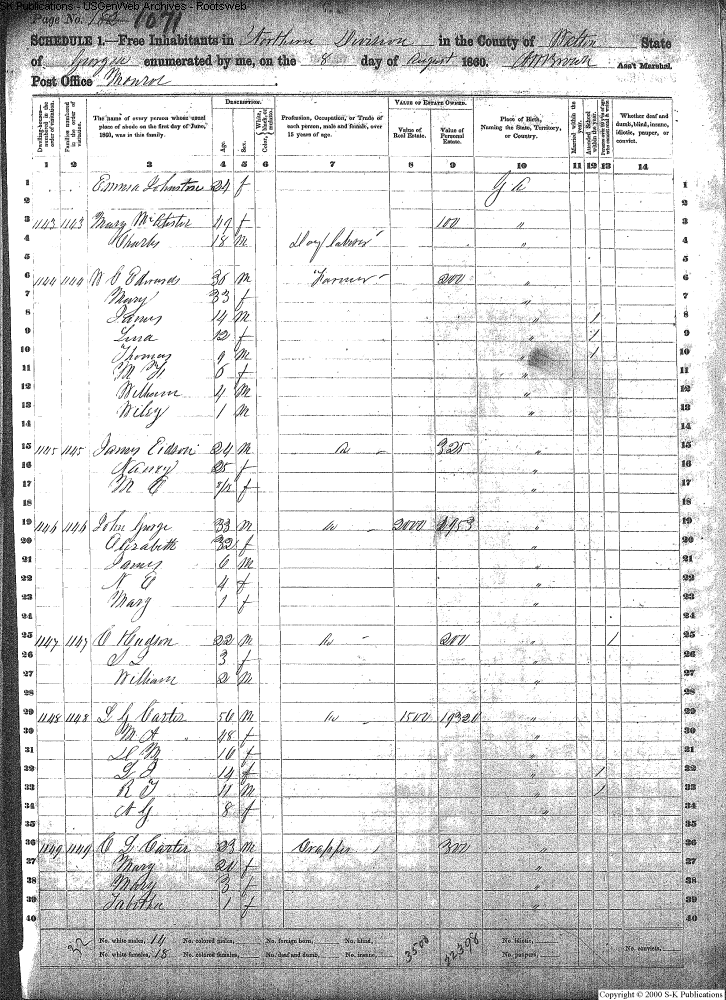 S-K Publications - USGenWeb Archives - Rootsweb
Page No. 1071
SCHEDULE 1.—Free Inhabitants in Northern Division in the County of Walton State
of Georgia enumerated by me, on the 8 day of August 1860. Brown Ass't Marshal.
Post Office Monroe
Dwelling-houses—numbered in the order of visitation.
Families numbered in the order of visitation.
The name of every person whose usual place of abode on the first day of June, 1860, was in this family.
DESCRIPTION.
Age.
Sex.
Color, White, black, or mulatto.
Profession, Occupation, or Trade of each person, male and female, over 15 years of age.
VALUE OF ESTATE OWNED.
Value of Real Estate.
Value of Personal Estate.
Place of Birth, Naming the State, Territory, or Country.
Married within the year.
Attended School within the year.
Whether deaf and dumb, blind, insane, idiotic, pauper, or convict.
1 2 3 4 5 6 7 8 9 10 11 12 13 14
1 Emma Johnston 24 f Ga 1
2 2
3 1143 1143 Mary 49 f 100 " 3
4 Charles 18 m Day laborer " 4
5 5
6 1144 1144 W C Edwards 35 m Farmer 200 " 6
7 Mary 33 f " 7
8 James 14 m " 1 8
9 12 f " 1 9
10 Thomas 9 m " 1 10
11 6 f " 11
12 William 4 m " 12
13 Wiley 1 m " 13
14 14
15 1145 1145 James Eidson 24 m Do 325 " 15
16 Nancy 25 f " 16
17 M f " 17
18 18
19 1146 1146 John George 33 m Do 2000 " 19
20 Elizabeth 32 f " 20
21 James 6 m " 21
22 4 f " 22
23 Mary 1 f " 23
24 24
25 1147 1147 C Hudson 22 m Do 200 " 1 25
26 3 f " 26
27 William 2 m " 27
28 28
29 1148 1148 L G Carter 56 m Do 1500 19320 " 29
30 M A 48 f " 30
31 16 f " 31
32 14 f " 1 32
33 11 m " 1 33
34 8 f " 34
35 35
36 1149 1149 C G Carter 23 m Cropper 300 " 36
37 Mary 21 f " 37
38 Mary 3 f " 38
39 Tabitha 1 f " 39
40 40
32 No. white males, 14 No. colored males, No. foreign born, No. blind, 3500 22398 No. idiotic, No. convicts,
No. white females, 18 No. colored females, No. deaf and dumb, No. insane, No. paupers,
Copyright © 2000 S-K Publications